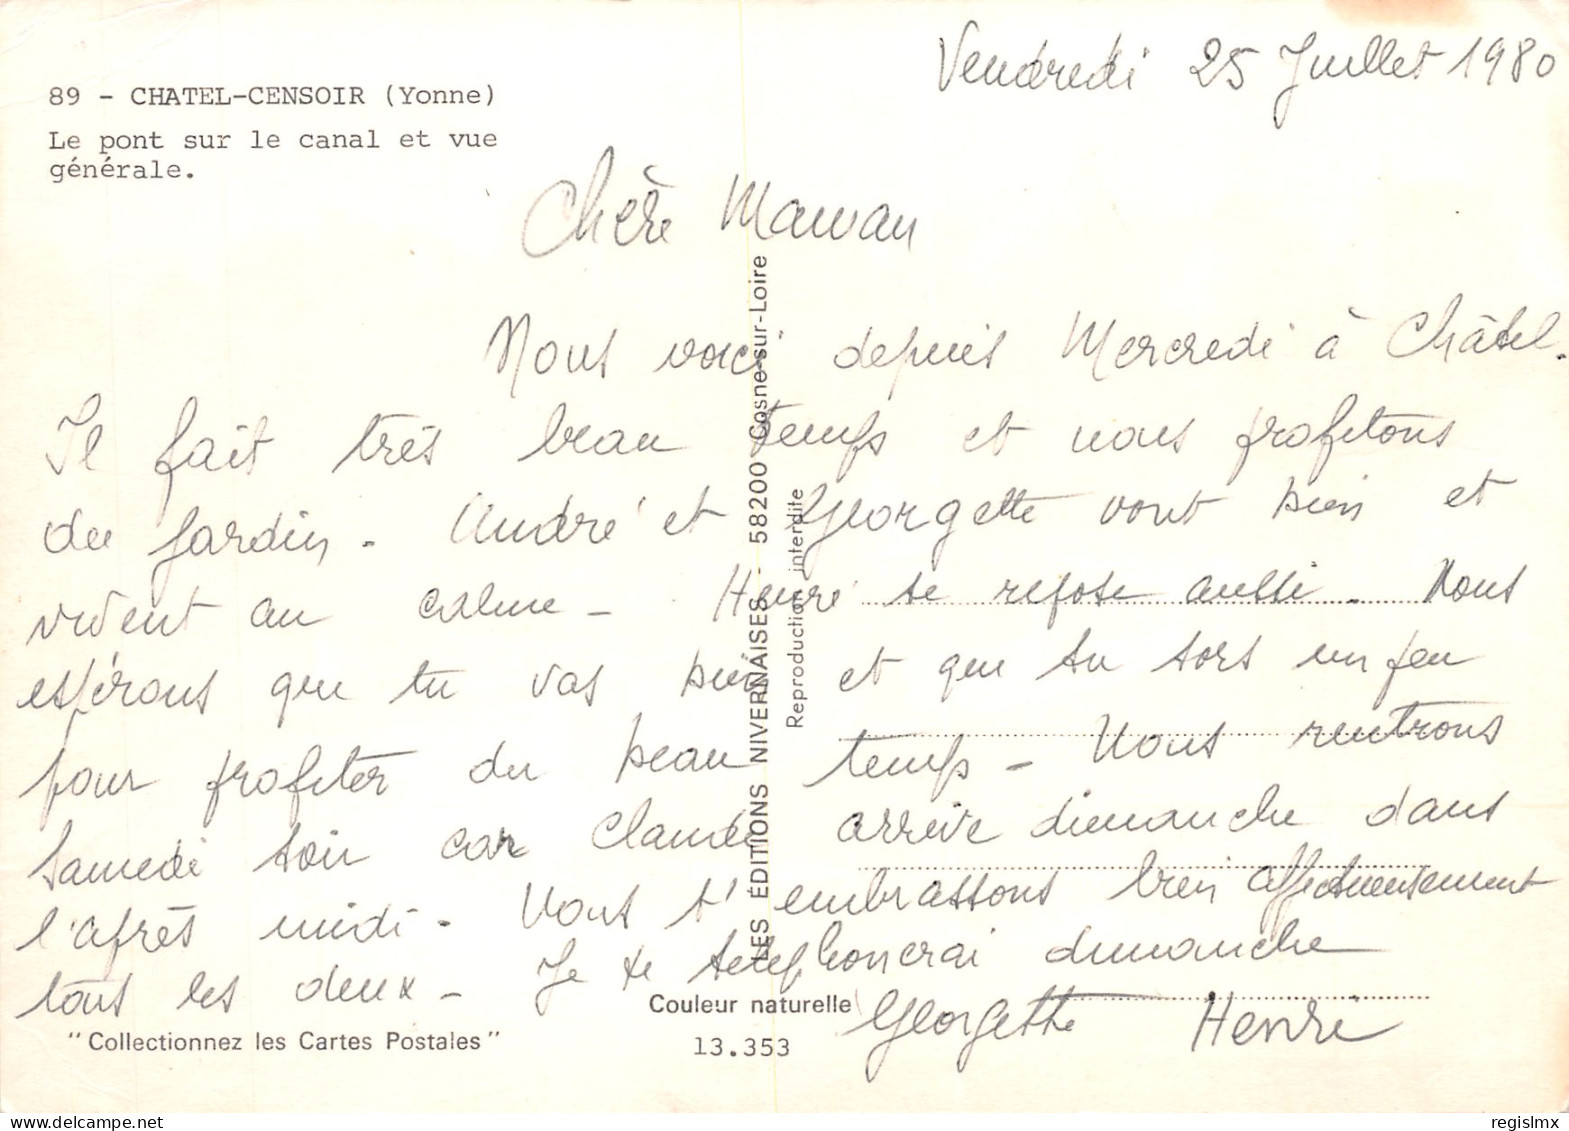 Vendredi 25 Juillet 1980
89 - CHATEL-CENSOIR (Yonne)
Le pont sur le canal et vue
générale.
Chère Maman
Nous voici depuis Mercredi à Châtel.
Il fait très beau temps et nous profitons
du jardin. André et Georgette vont bien et
vivent au calme - Henri se repose aussi. Nous
espérons que tu vas bien et que tu sors un peu
pour profiter du beau temps - Nous rentrons
Samedi soir car Claude arrive dimanche dans
l'après midi. Nous t'embrassons bien affectueusement
tous les deux - Je te téléphonerai dimanche
Georgette Henri
LES ÉDITIONS NIVERNAISES - 58200 Cosne-sur-Loire
Reproduction interdite
Couleur naturelle
13.353
"Collectionnez les Cartes Postales"
www.delcampe.net
regislmx